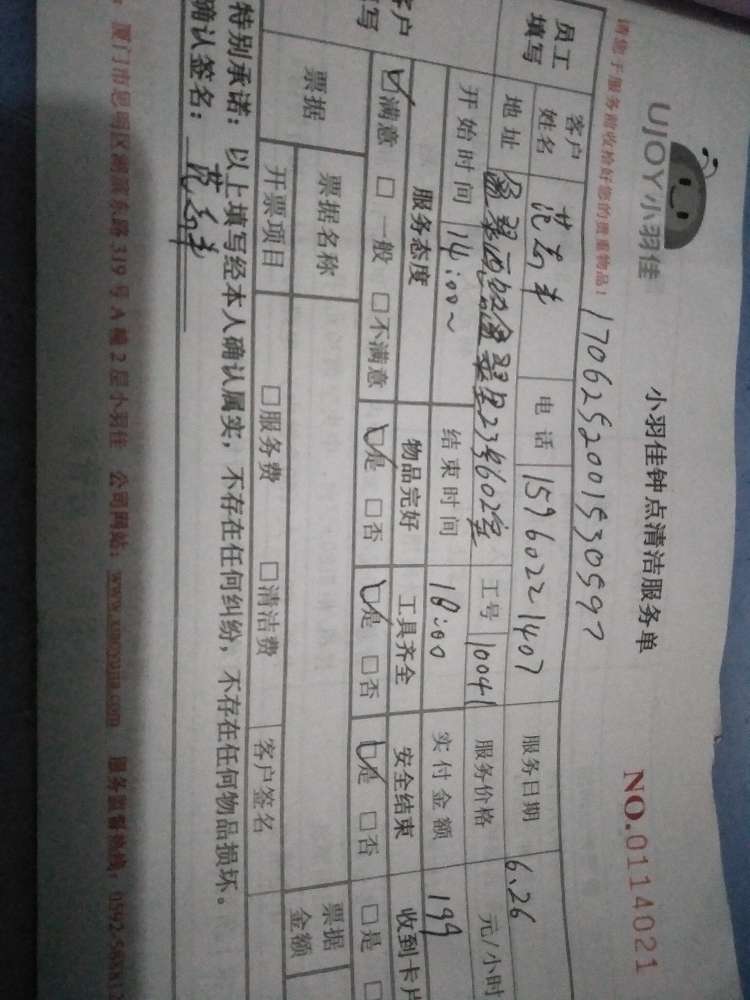 UJOY小羽佳
小羽佳钟点清洁服务单
NO.0114021
请您于服务前收拾好您的贵重物品!
1706252001530597
员工填写
客户姓名
电话 15960221407
服务日期 6.26
地址 234602室
工号 10041
服务价格 元/小时
开始时间 14:00~
结束时间 18:00
实付金额 199
客户
填写
服务态度 物品完好 工具齐全 安全结束 收到卡片
☑满意 □一般 □不满意 ☑是 □否 ☑是 □否 ☑是 □否 □是 □
票据 票据名称 票据金额
开票项目 □服务费 □清洁费 客户签名
特别承诺：以上填写经本人确认属实，不存在任何纠纷，不存在任何物品损坏。
确认签名：
厦门市思明区湖滨东路319号A幢2层小羽佳 公司网站：www.xiaoyujia.com 服务监督热线：0592-